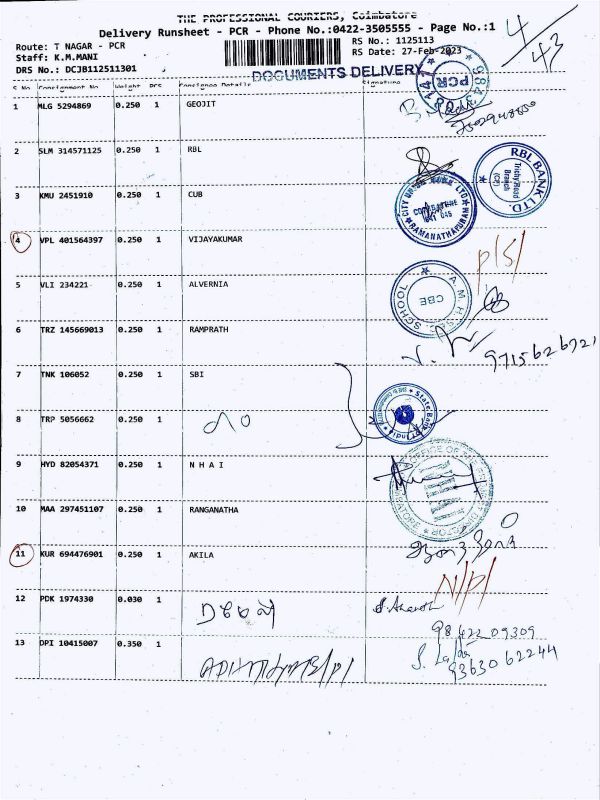 THE PROFESSIONAL COURIERS, Coimbatore
Delivery Runsheet - PCR - Phone No.:0422-3505555 - Page No.:1
Route: T NAGAR - PCR
RS No.: 1125113
Staff: K.M.MANI
RS Date: 27-Feb-2023
DRS No.: DCJB112511301
DOCUMENTS DELIVERY
4/43
S No Consignment No Weight PCS Consignee Details Signature
1 MLG 5294869 0.250 1 GEOJIT
PCR
2 SLM 314571125 0.250 1 RBL
RBL BANK LTD.
3 KMU 2451910 0.250 1 CUB
RAMANATHAPURAM
4 VPL 401564397 0.250 1 VIJAYAKUMAR
5 VLI 234221 0.250 1 ALVERNIA
SCHOOL CBE
6 TRZ 145669013 0.250 1 RAMPRATH
7 TNK 106052 0.250 1 SBI
8 TRP 5056662 0.250 1
State Bank
9 HYD 82054371 0.250 1 N H A I
10 MAA 297451107 0.250 1 RANGANATHA
11 KUR 694476901 0.250 1 AKILA
N/P/
12 PDK 1974330 0.030 1
98422 09309
13 DPI 10415007 0.350 1
93630 62244